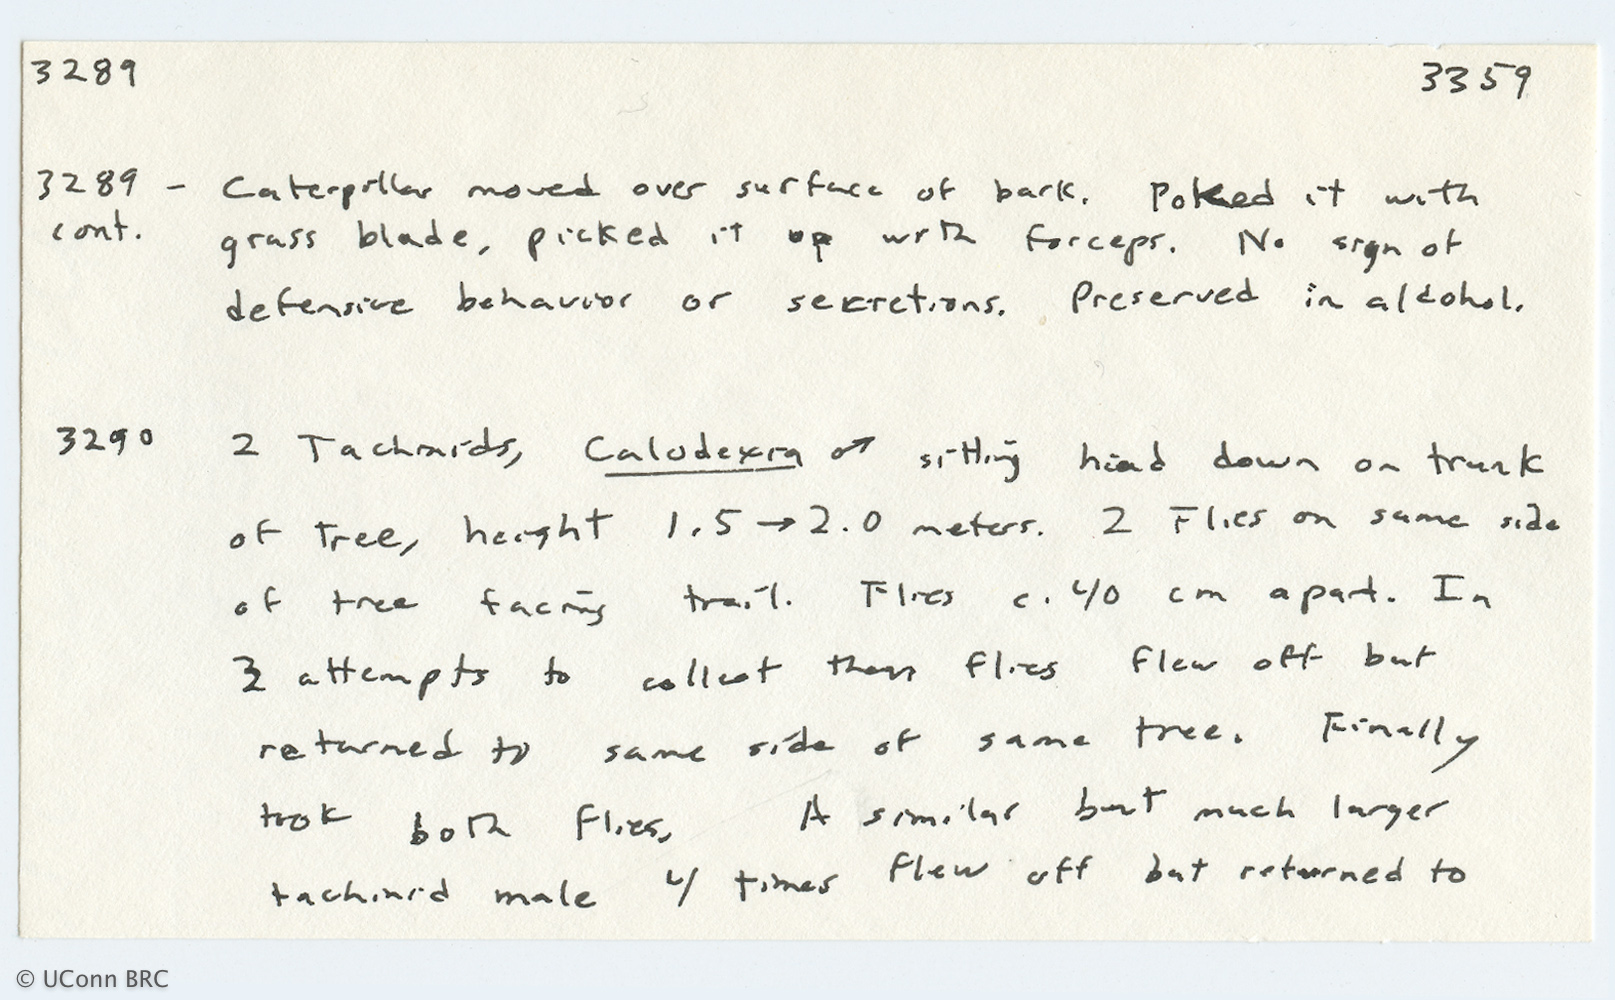 3289 3359
3289 - Caterpillar moved over surface of bark. Poked it with
cont. grass blade, picked it up with forceps. No sign of
defensive behavior or secretions. Preserved in alcohol.
3290 2 Tachinids, Calodexia ♂ sitting head down on trunk
of tree, height 1.5 → 2.0 meters. 2 Flies on same side
of tree facing trail. Flies c. 40 cm apart. In
attempts to collect them flies flew off but
returned to same side of same tree. Finally
took both flies. A similar but much larger
tachinid male 4 times flew off but returned to
© UConn BRC